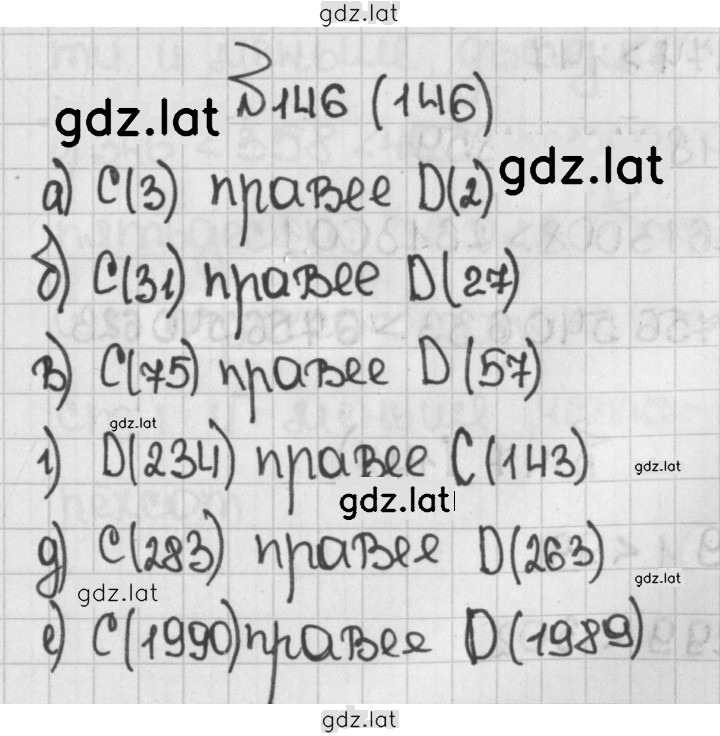 gdz.lat
№146 (146)
gdz.lat
gdz.lat
а) C(3) правее D(2)
б) C(31) правее D(27)
в) C(75) правее D(57)
gdz.lat
г) D(234) правее C(143)
gdz.lat
gdz.lat
д) C(283) правее D(263)
gdz.lat
gdz.lat
е) C(1990) правее D(1989)
gdz.lat